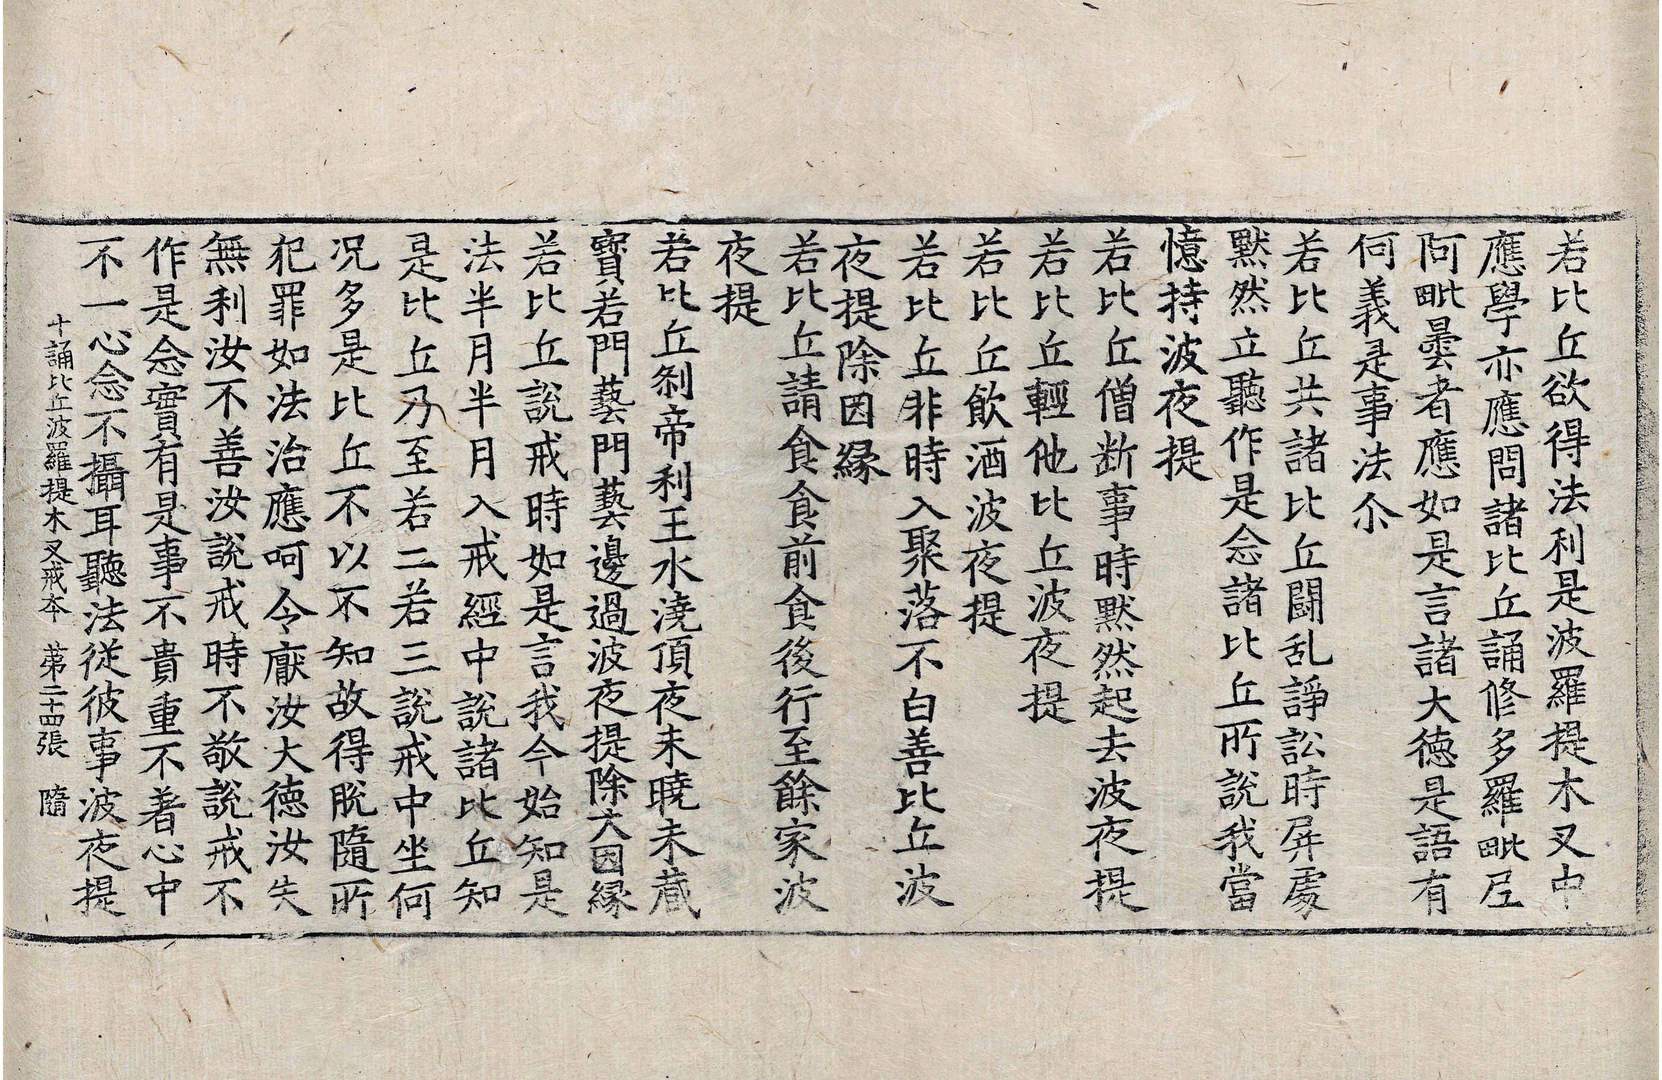 若比丘欲得法利是波羅提木叉中
應學亦應問諸比丘誦修多羅毗尼
阿毗曇者應如是言諸大德是語有
何義是事法尒
若比丘共諸比丘鬪乱諍訟時屏處
默然立聽作是念諸比丘所說我當
憶持波夜提
若比丘僧断事時默然起去波夜提
若比丘輕他比丘波夜提
若比丘飲酒波夜提
若比丘非時入聚落不白善比丘波
夜提除因縁
若比丘請食食前食後行至餘家波
夜提
若比丘刹帝利王水澆頂夜未曉未蔵
寶若門藝門藝邊過波夜提除大因縁
若比丘說戒時如是言我今始知是
法半月半月入戒經中說諸比丘知
是比丘乃至若二若三說戒中坐何
况多是比丘不以不知故得脫隨所
犯罪如法治應呵令厭汝大徳汝失
無利汝不善汝說戒時不敬說戒不
作是念實有是事不貴重不著心中
不一心念不攝耳聽法従彼事波夜提
十誦比丘波羅提木叉戒本 苐二十四張 隨